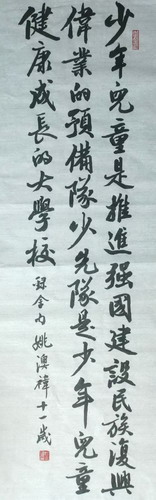 少年兒童是推進强國建設民族復興
偉業的預備隊少先隊是少年兒童
健康成長的大學校 录金句姚澳禕十一歲